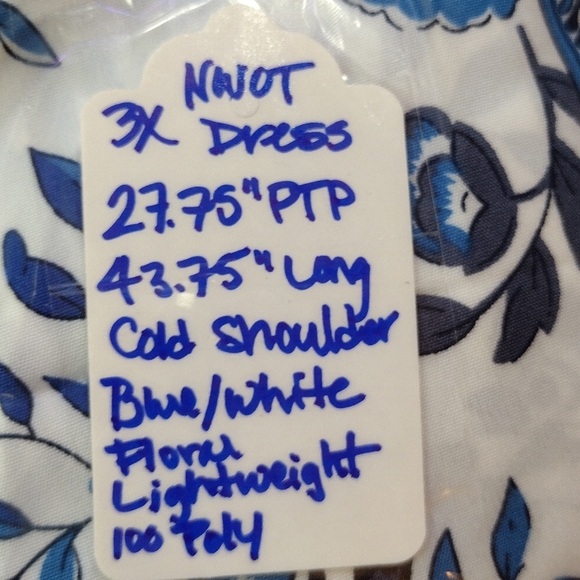 NWOT
3X Dress
27.75" PTP
43.75" Long
Cold Shoulder
Blue/White
Floral
Lightweight
100% Poly